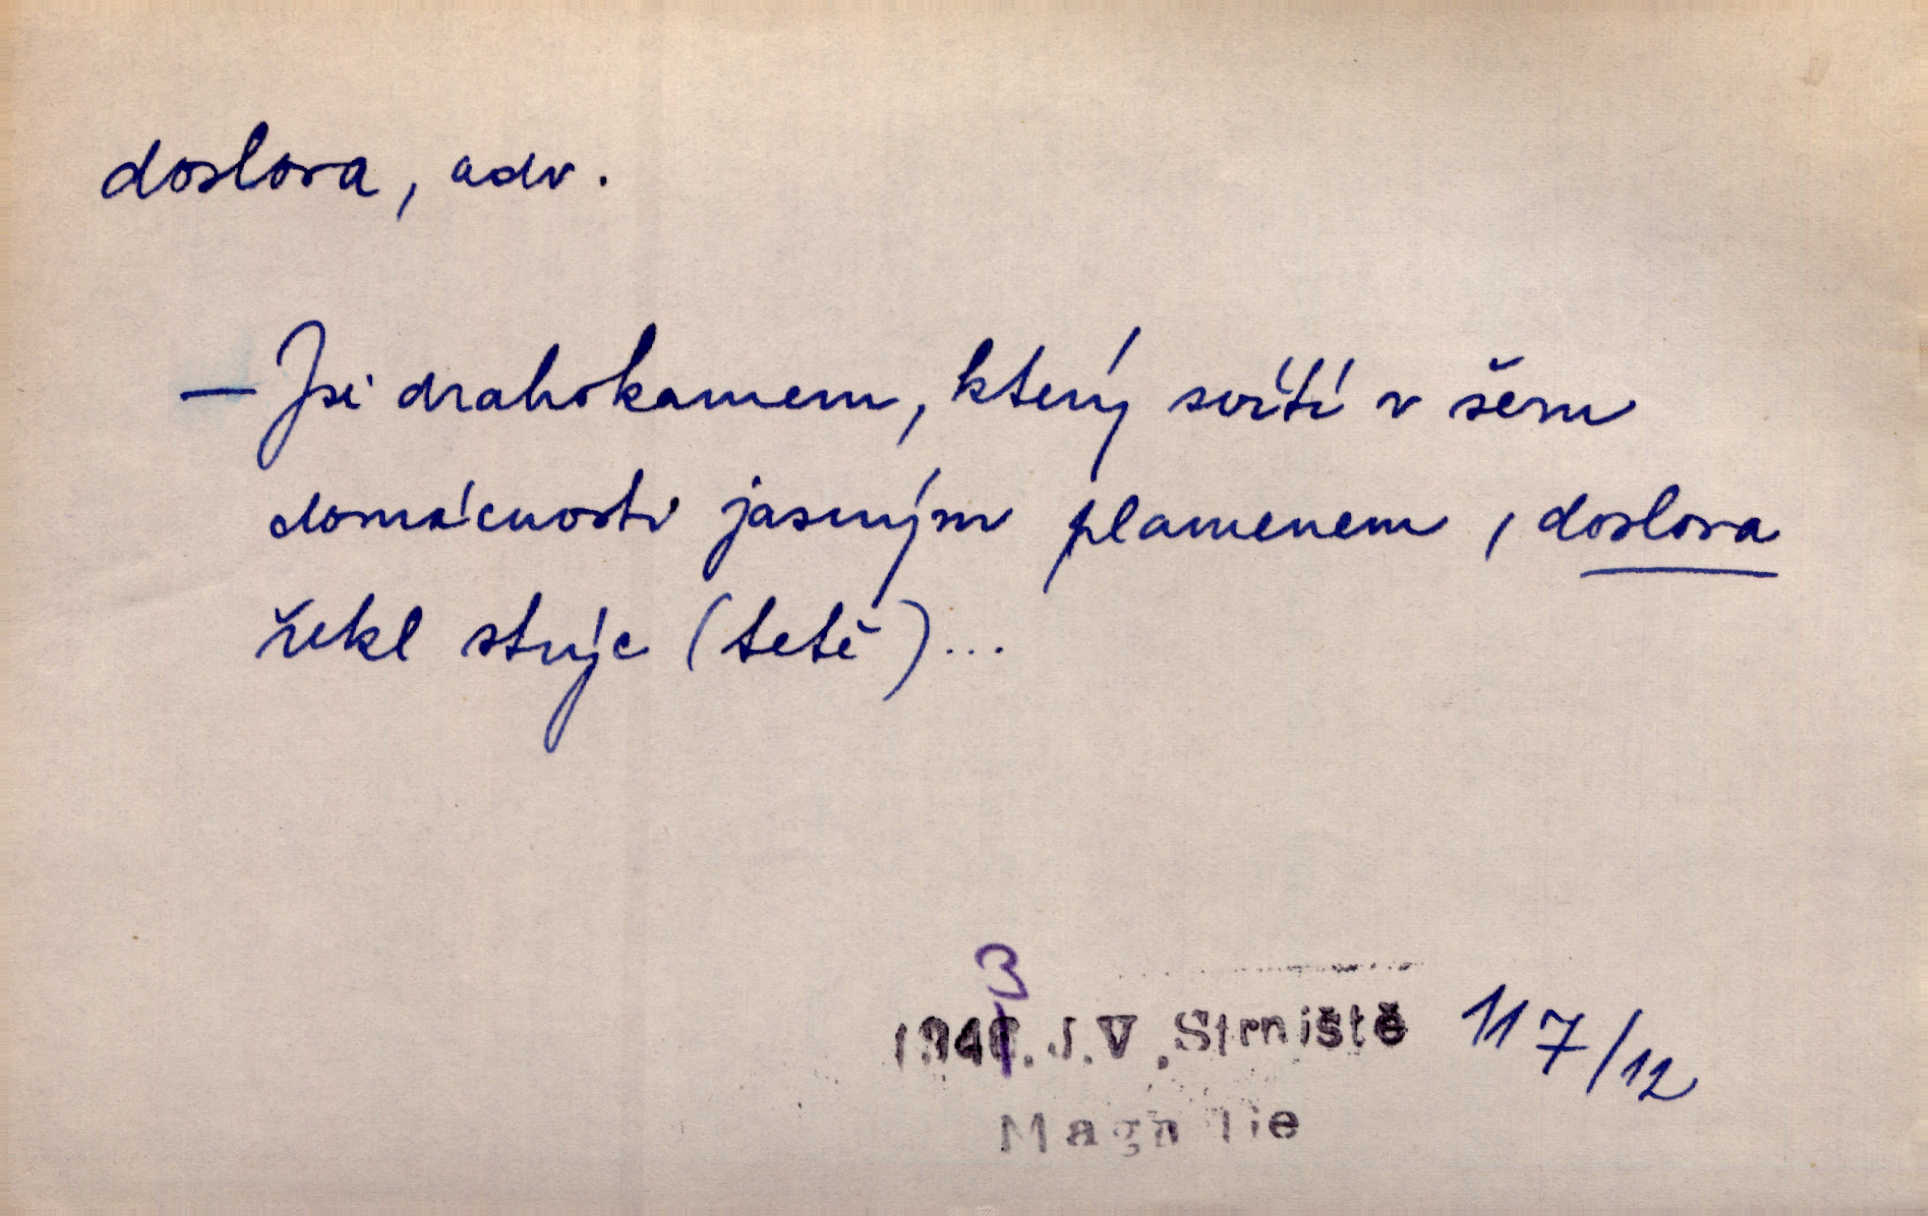 doslova, adv.
— Jsi drahokamem, který svítí v šeru
domácnosti jasným plamenem, doslova
řekl strýc (tetě)...
3
194 . J.V. Strniště 117/12